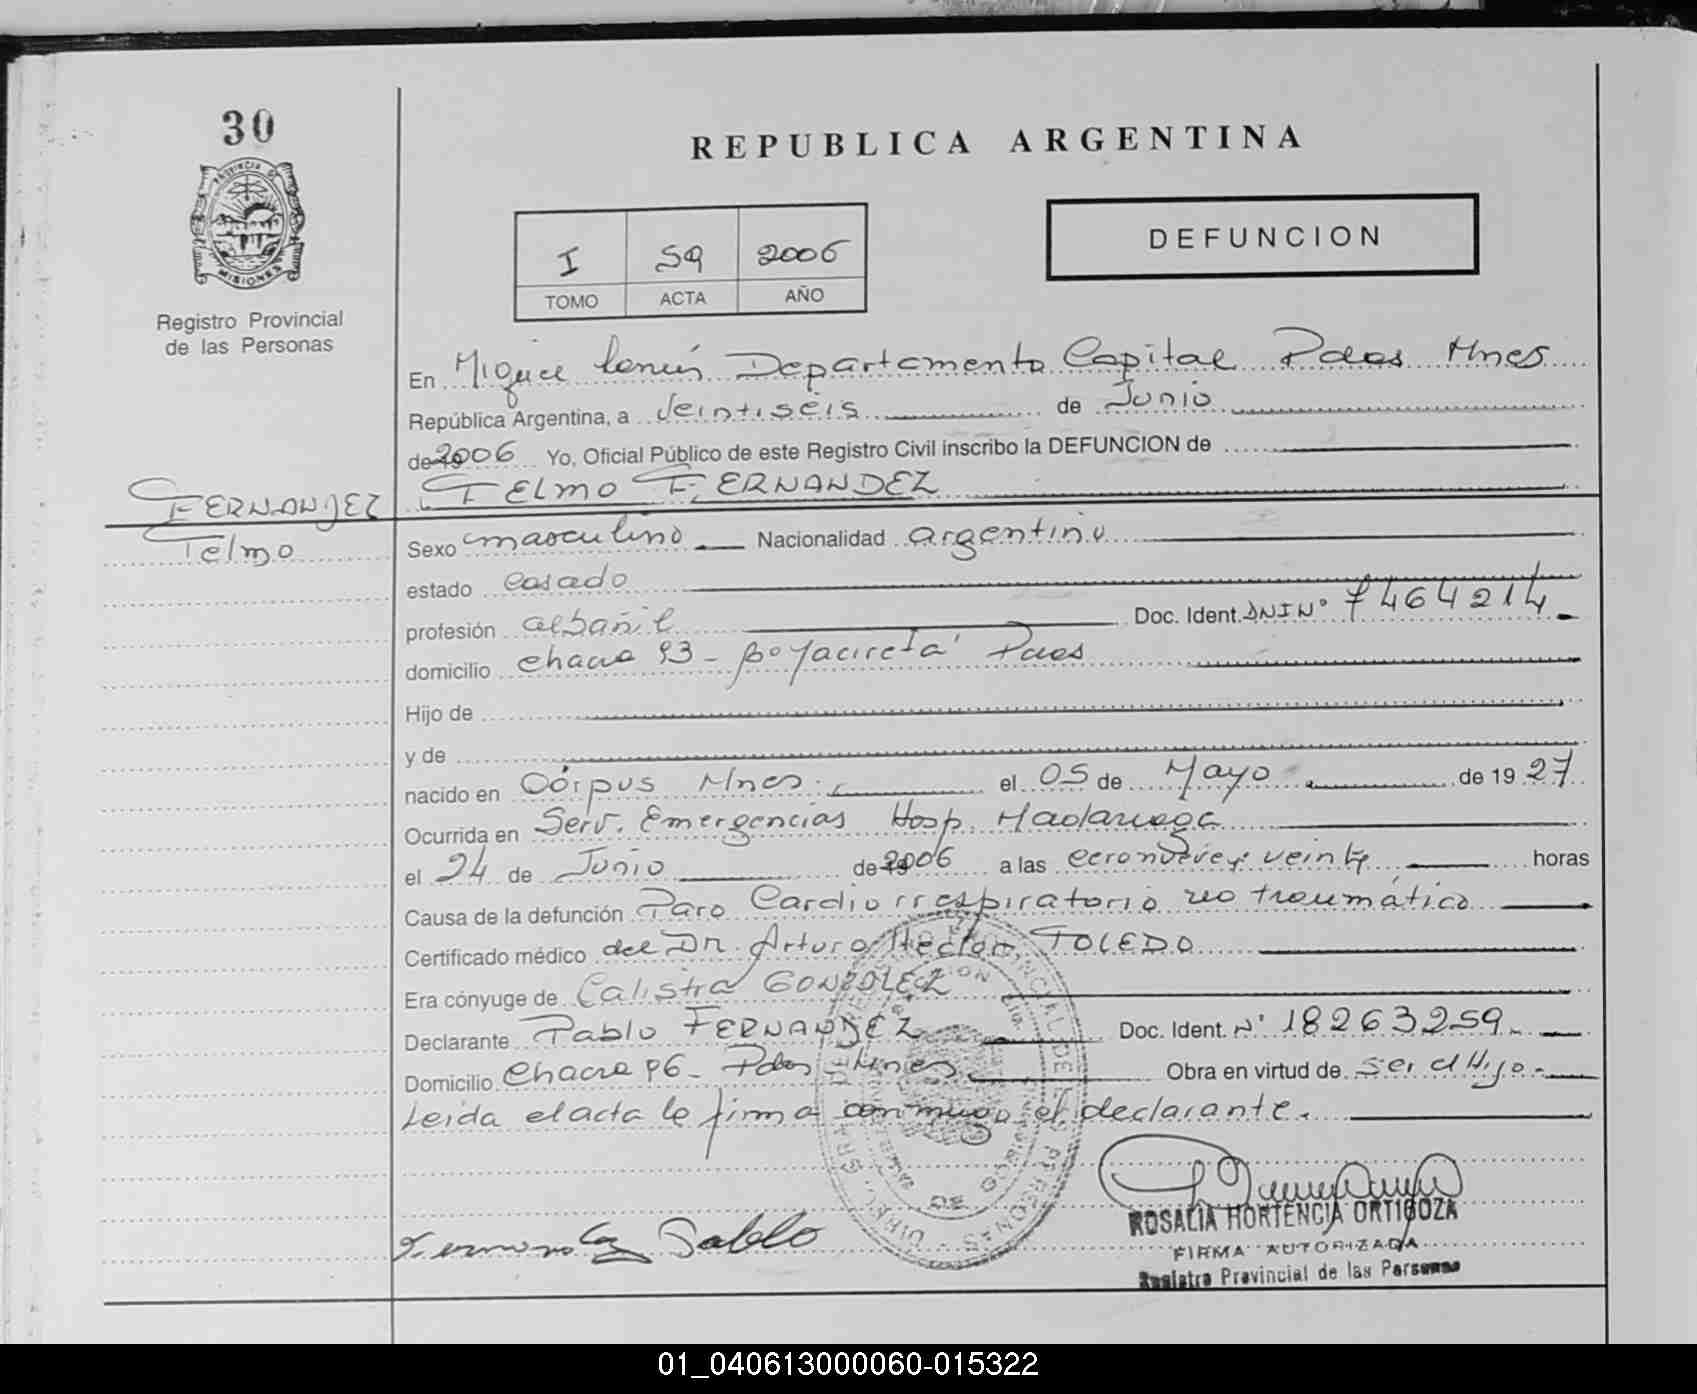 30
PROVINCIA DE
MISIONES
Registro Provincial
de las Personas
REPUBLICA ARGENTINA
I 59 2006
TOMO ACTA AÑO
DEFUNCION
En Miguel Lanús Departamento Capital Pdas Mnes
República Argentina, a Veintiseis de Junio
de 2006 Yo, Oficial Público de este Registro Civil inscribo la DEFUNCION de
FERNANDEZ TELMO FERNANDEZ
Telmo
Sexo masculino Nacionalidad argentino
estado casado
profesión albañil Doc. Ident. DNI Nº 7464214
domicilio chacra 93 - Bº Yacireta' Pdas
Hijo de
y de
nacido en Córpus Mnes. el 05 de Mayo de 1927
Ocurrida en Serv. Emergencias Hosp. Madariaga
el 24 de Junio de 2006 a las cero nueve y veinte horas
Causa de la defunción Paro Cardiorrespiratorio no traumático
Certificado médico del Dr. Arturo Hector TOLEDO
Era cónyuge de Calistra GONZALEZ
Declarante Pablo FERNANDEZ Doc. Ident. Nº 18263259
Domicilio Chacra 96 - Pdas Mnes Obra en virtud de ser el Hijo.-
Leida el acta la firma conmigo el declarante.
Fernandez Pablo
ROSALIA HORTENCIA ORTIGOZA
FIRMA AUTORIZADA
Registro Provincial de las Personas
01_040613000060-015322